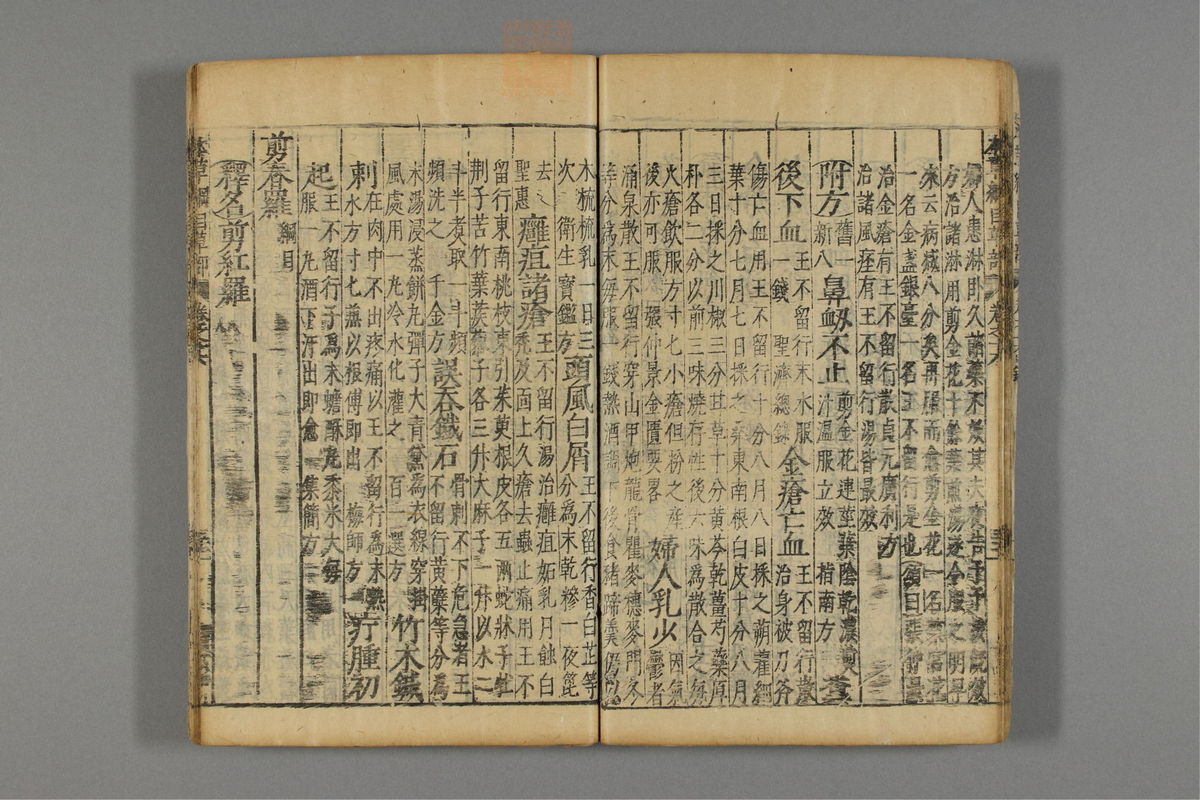 婦人患淋臥久諸藥不效其夫夜告予予按既效
方治諸淋用剪金花十餘葉煎湯遂令服之明早
來云病減八分矣再服而愈剪金花一名禁宮花
一名金盞銀臺一名王不留行是也頌曰張仲景
治金瘡有王不留行散貞元廣利方
治諸風痙有王不留行湯皆最效
附方舊一新八鼻衄不止剪金花連莖葉陰乾濃煎汁溫服立效 指南方糞
後下血王不留行末水服一錢 聖濟總錄金瘡亡血王不留行散治身被刀斧
傷亡血用王不留行十分八月八日採之蒴藋細
葉十分七月七日採之桑東南根白皮十分八月
三日採之川椒三分甘草十分黃芩乾薑芍藥厚
朴各二分以前三味燒存性後六味為散合之每
大瘡飲服方寸七小瘡但粉之產
後亦可服 張仲景金匱要畧婦人乳少因氣鬱者
涌泉散王不留行穿山甲炮龍骨瞿麥穗麥門冬
等分為末每服一錢熱酒調下後食豬蹄羹仍以
木梳梳乳一日三
次 衛生寶鑑方頭風白屑王不留行香白芷等分為末乾糝一夜篦
去 聖惠癰疽諸瘡王不留行湯治癰疽妬乳月蝕白
禿及面上久瘡去蟲止痛用王不
留行東南桃枝東引茱萸根皮各五兩蛇牀子牡
荆子苦竹葉蒺藜子各三升大麻子一升以水二
斗半煮取一斗頻
頻洗之 千金方誤吞鐵石骨刺不下危急者王
不留行黃蘗等分為
末湯浸蒸餅丸彈子大青黛為衣線穿掛
風處用一丸冷水化灌之 百一選方竹木鍼
刺在肉中不出疼痛以王不留行為末熟
水方寸七兼以根傅即出 梅師方疔腫初
起王不留行子為末蟾酥丸黍米大每
服一丸酒下汗出即愈 集簡方
剪春羅綱目
釋名剪紅羅